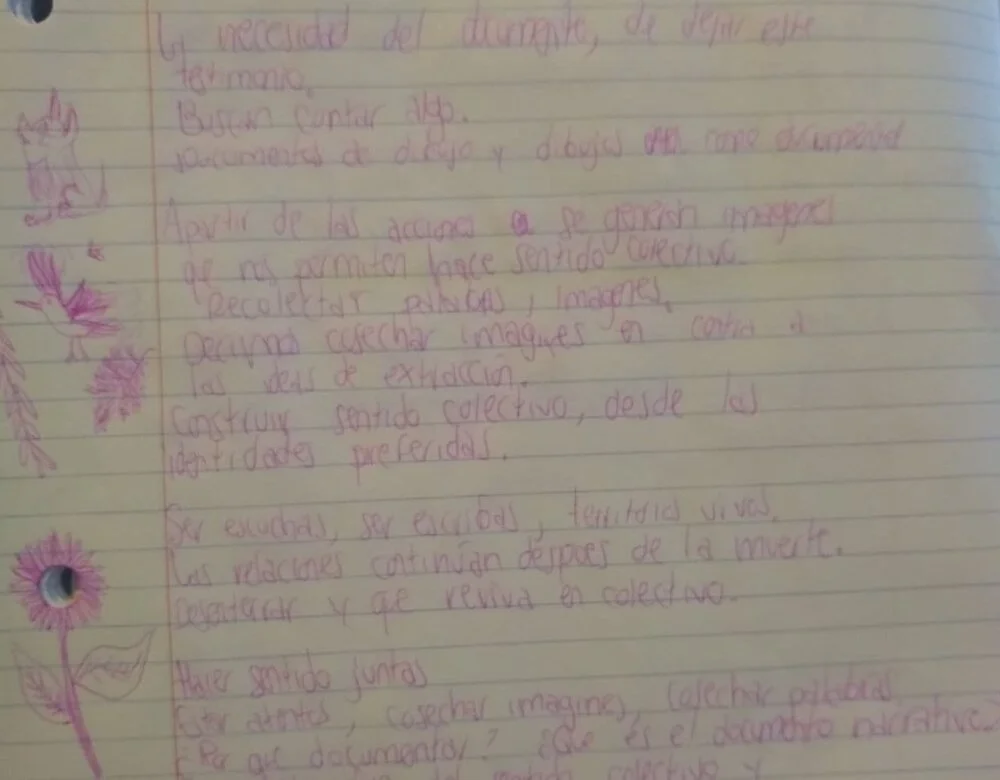 La necesidad del documento, de dejar este
testimonio.
Buscan contar algo.
Documentos de dibujo y dibujos como documento
Apartir de las acciones se generan imagenes
que nos permiten hace sentido colectivo.
Recolectar palabras, imagenes.
Decimos cosechar imagenes en contra a
las ideas de extracción.
Construir sentido colectivo, desde las
identidades preferidas.
Ser escuchas, ser escribas, territorios vivos.
Las relaciones continúan despues de la muerte.
Desenterrar y que reviva en colectivo.
Hacer sentido juntas
Estar atentos, cosechar imagenes, cosechar palabras
¿Por que documentar? ¿Que es el documento narrativo?
colectivo y